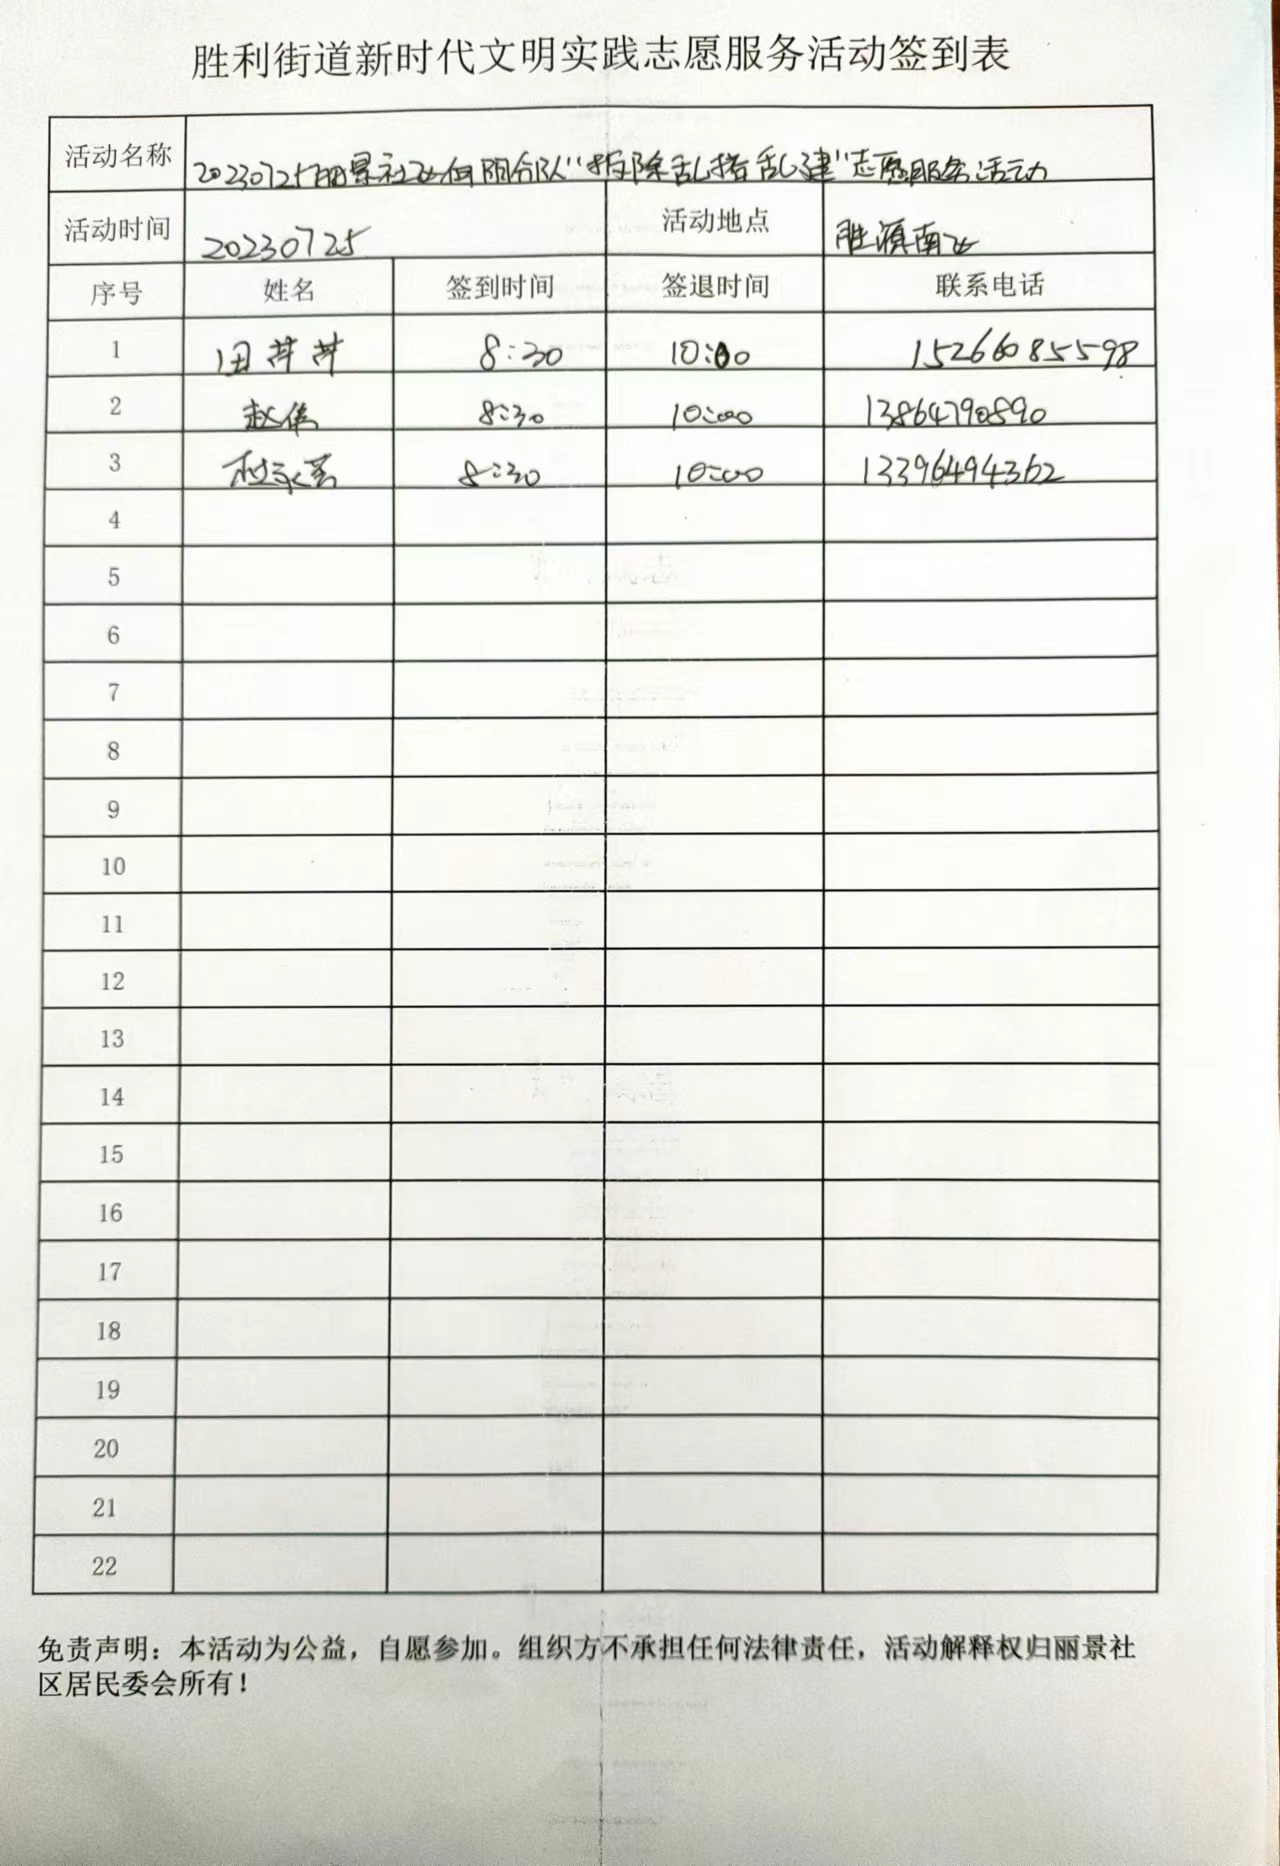 胜利街道新时代文明实践志愿服务活动签到表
活动名称 20230725丽景社区向阳分队“拆除乱搭乱建”志愿服务活动
活动时间 20230725 活动地点 胜滨南区
序号 姓名 签到时间 签退时间 联系电话
1 田芹芹 8:30 10:00 15266085598
2 赵伟 8:30 10:00 13864790890
3 8:30 10:00 13396494362
4
5
6
7
8
9
10
11
12
13
14
15
16
17
18
19
20
21
22
免责声明：本活动为公益，自愿参加。组织方不承担任何法律责任，活动解释权归丽景社
区居民委会所有！